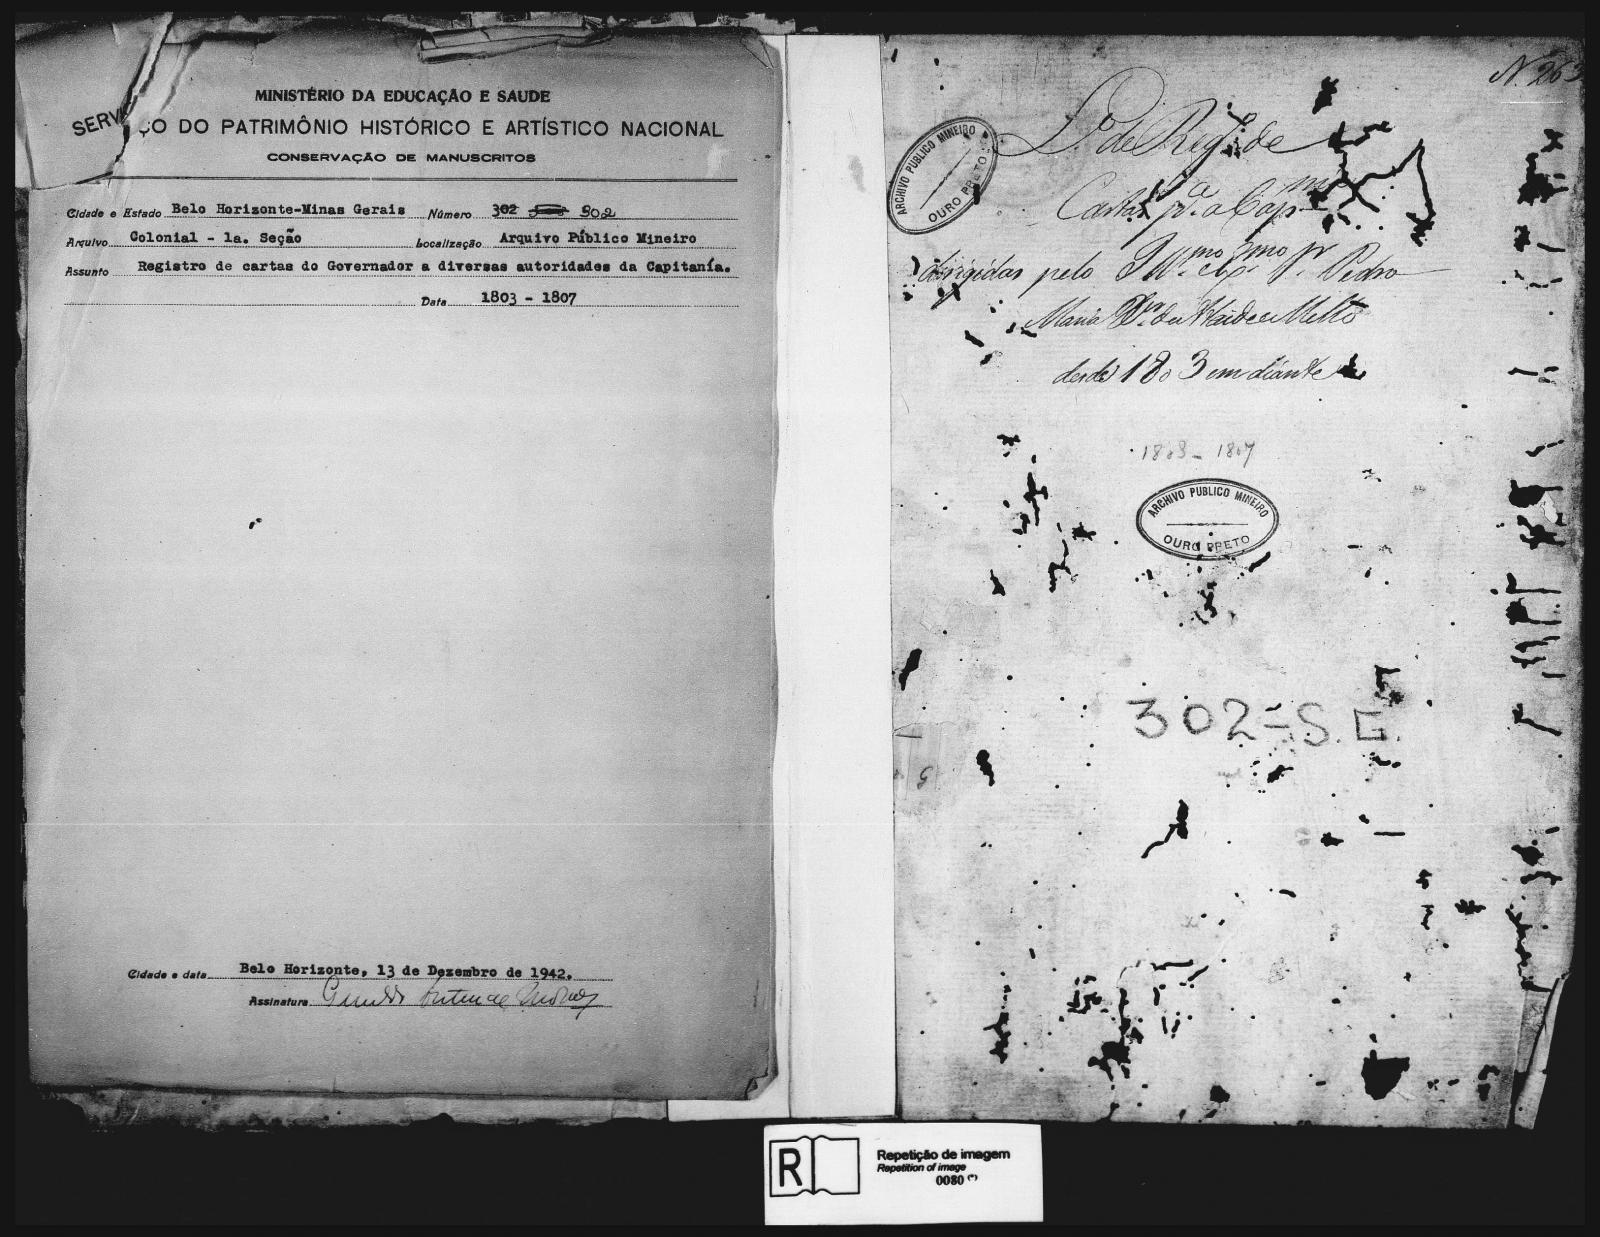 MINISTÉRIO DA EDUCAÇÃO E SAUDE
SERVIÇO DO PATRIMÔNIO HISTÓRICO E ARTÍSTICO NACIONAL
CONSERVAÇÃO DE MANUSCRITOS
Cidade e Estado Belo Horizonte-Minas Gerais Número 302 302
Arquivo Colonial - 1a. Seção Localização Arquivo Público Mineiro
Assunto Registro de cartas do Governador a diversas autoridades da Capitanía.
Data 1803 - 1807
Cidade e data Belo Horizonte, 13 de Dezembro de 1942.
Assinatura
N. 263
ARCHIVO PUBLICO MINEIRO
OURO PRETO
L.o de Reg.o de
Cartas p.a a Cap.nia
dirigidas pelo Ill.mo Ex.mo Sr. Pedro
Maria X.er de Ataide e Mello
desde 1803 em diante
1803 - 1807
ARCHIVO PUBLICO MINEIRO
OURO PRETO
302=S.G.
R
Repetição de imagem
Repetition of image
0080 (*)